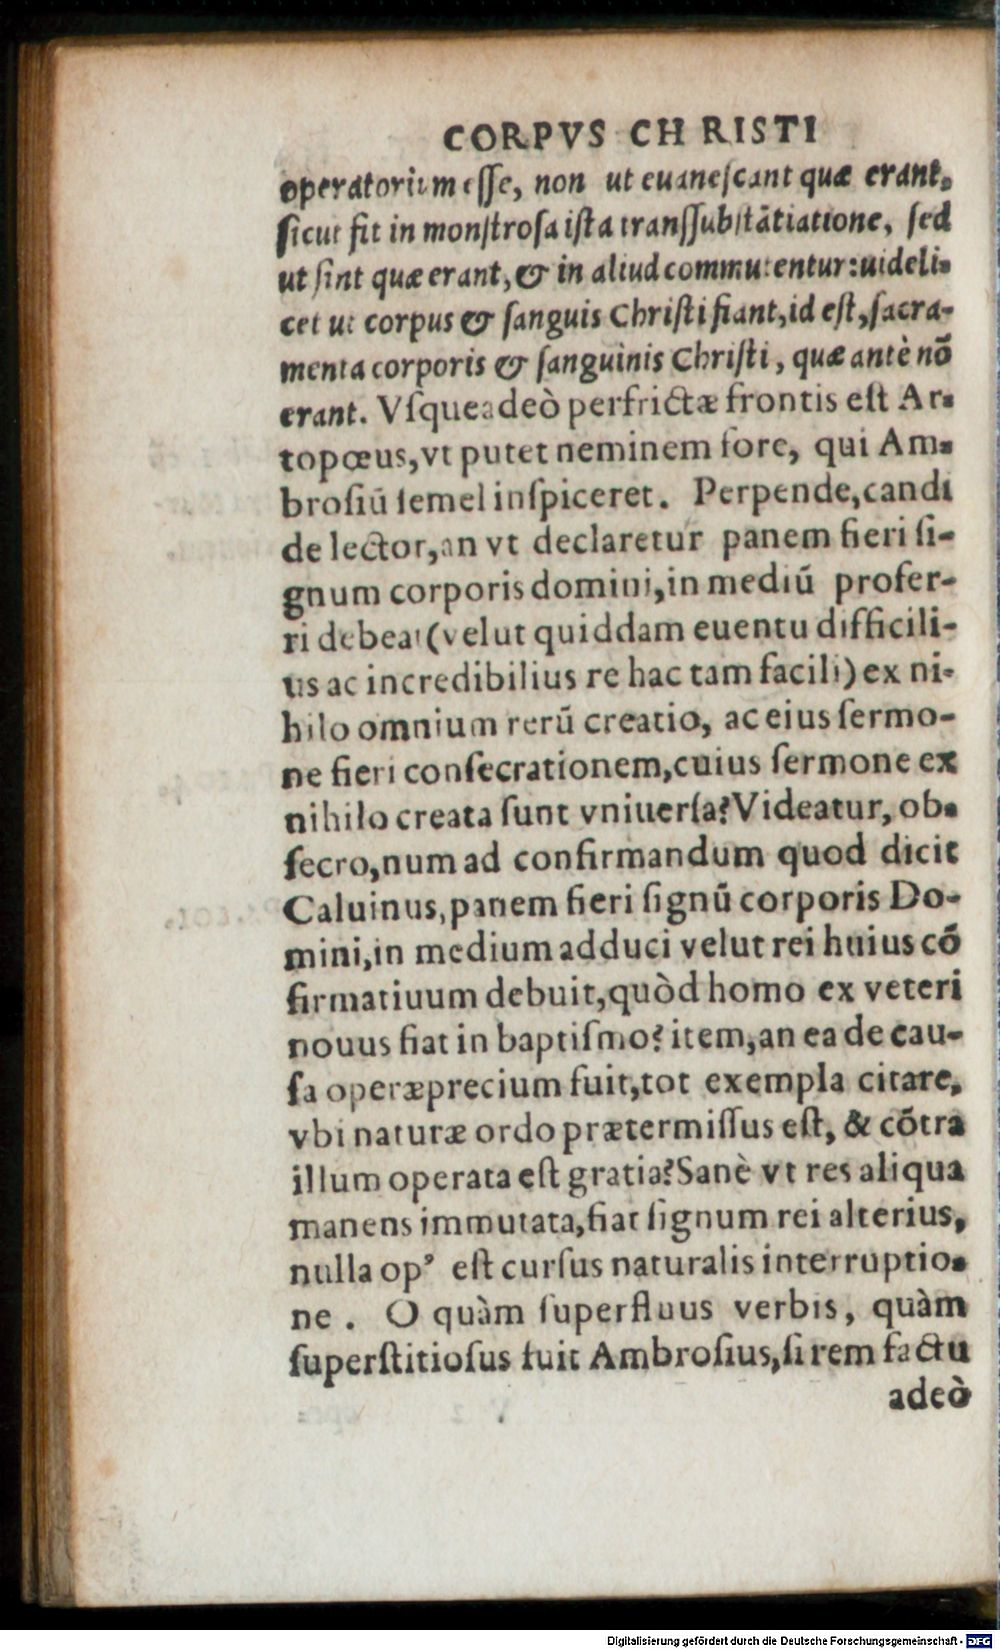 CORPVS CHRISTI
operatorium eſſe, non ut euaneſcant quæ erant,
ſicut fit in monſtroſa iſta tranſſubſtātiatione, ſed
ut ſint quæ erant, & in aliud commutentur: uideli-
cet ut corpus & ſanguis Chriſti fiant, id eſt, ſacra-
menta corporis & ſanguinis Chriſti, quæ antè nō
erant. Vſqueadeò perfrictæ frontis eſt Ar-
topœus, vt putet neminem fore, qui Am-
broſiū ſemel inſpiceret. Perpende, candi
de lector, an vt declaretur panem fieri ſi-
gnum corporis domini, in mediū profer-
ri debeat (velut quiddam euentu difficili-
us ac incredibilius re hac tam facili) ex ni-
hilo omnium rerū creatio, ac eius ſermo-
ne fieri conſecrationem, cuius ſermone ex
nihilo creata ſunt vniuerſa? Videatur, ob-
ſecro, num ad confirmandum quod dicit
Caluinus, panem fieri ſignū corporis Do-
mini, in medium adduci velut rei huius cō
firmatiuum debuit, quòd homo ex veteri
nouus fiat in baptiſmo? item, an ea de cau-
ſa operæprecium fuit, tot exempla citare,
vbi naturæ ordo prætermiſſus eſt, & cōtra
illum operata eſt gratia? Sanè vt res aliqua
manens immutata, fiat ſignum rei alterius,
nulla opꝰ eſt curſus naturalis interruptio-
ne. O quàm ſuperfluus verbis, quàm
ſuperſtitioſus fuit Ambroſius, ſi rem factu
adeò
Digitalisierung gefördert durch die Deutsche Forschungsgemeinschaft - DFG